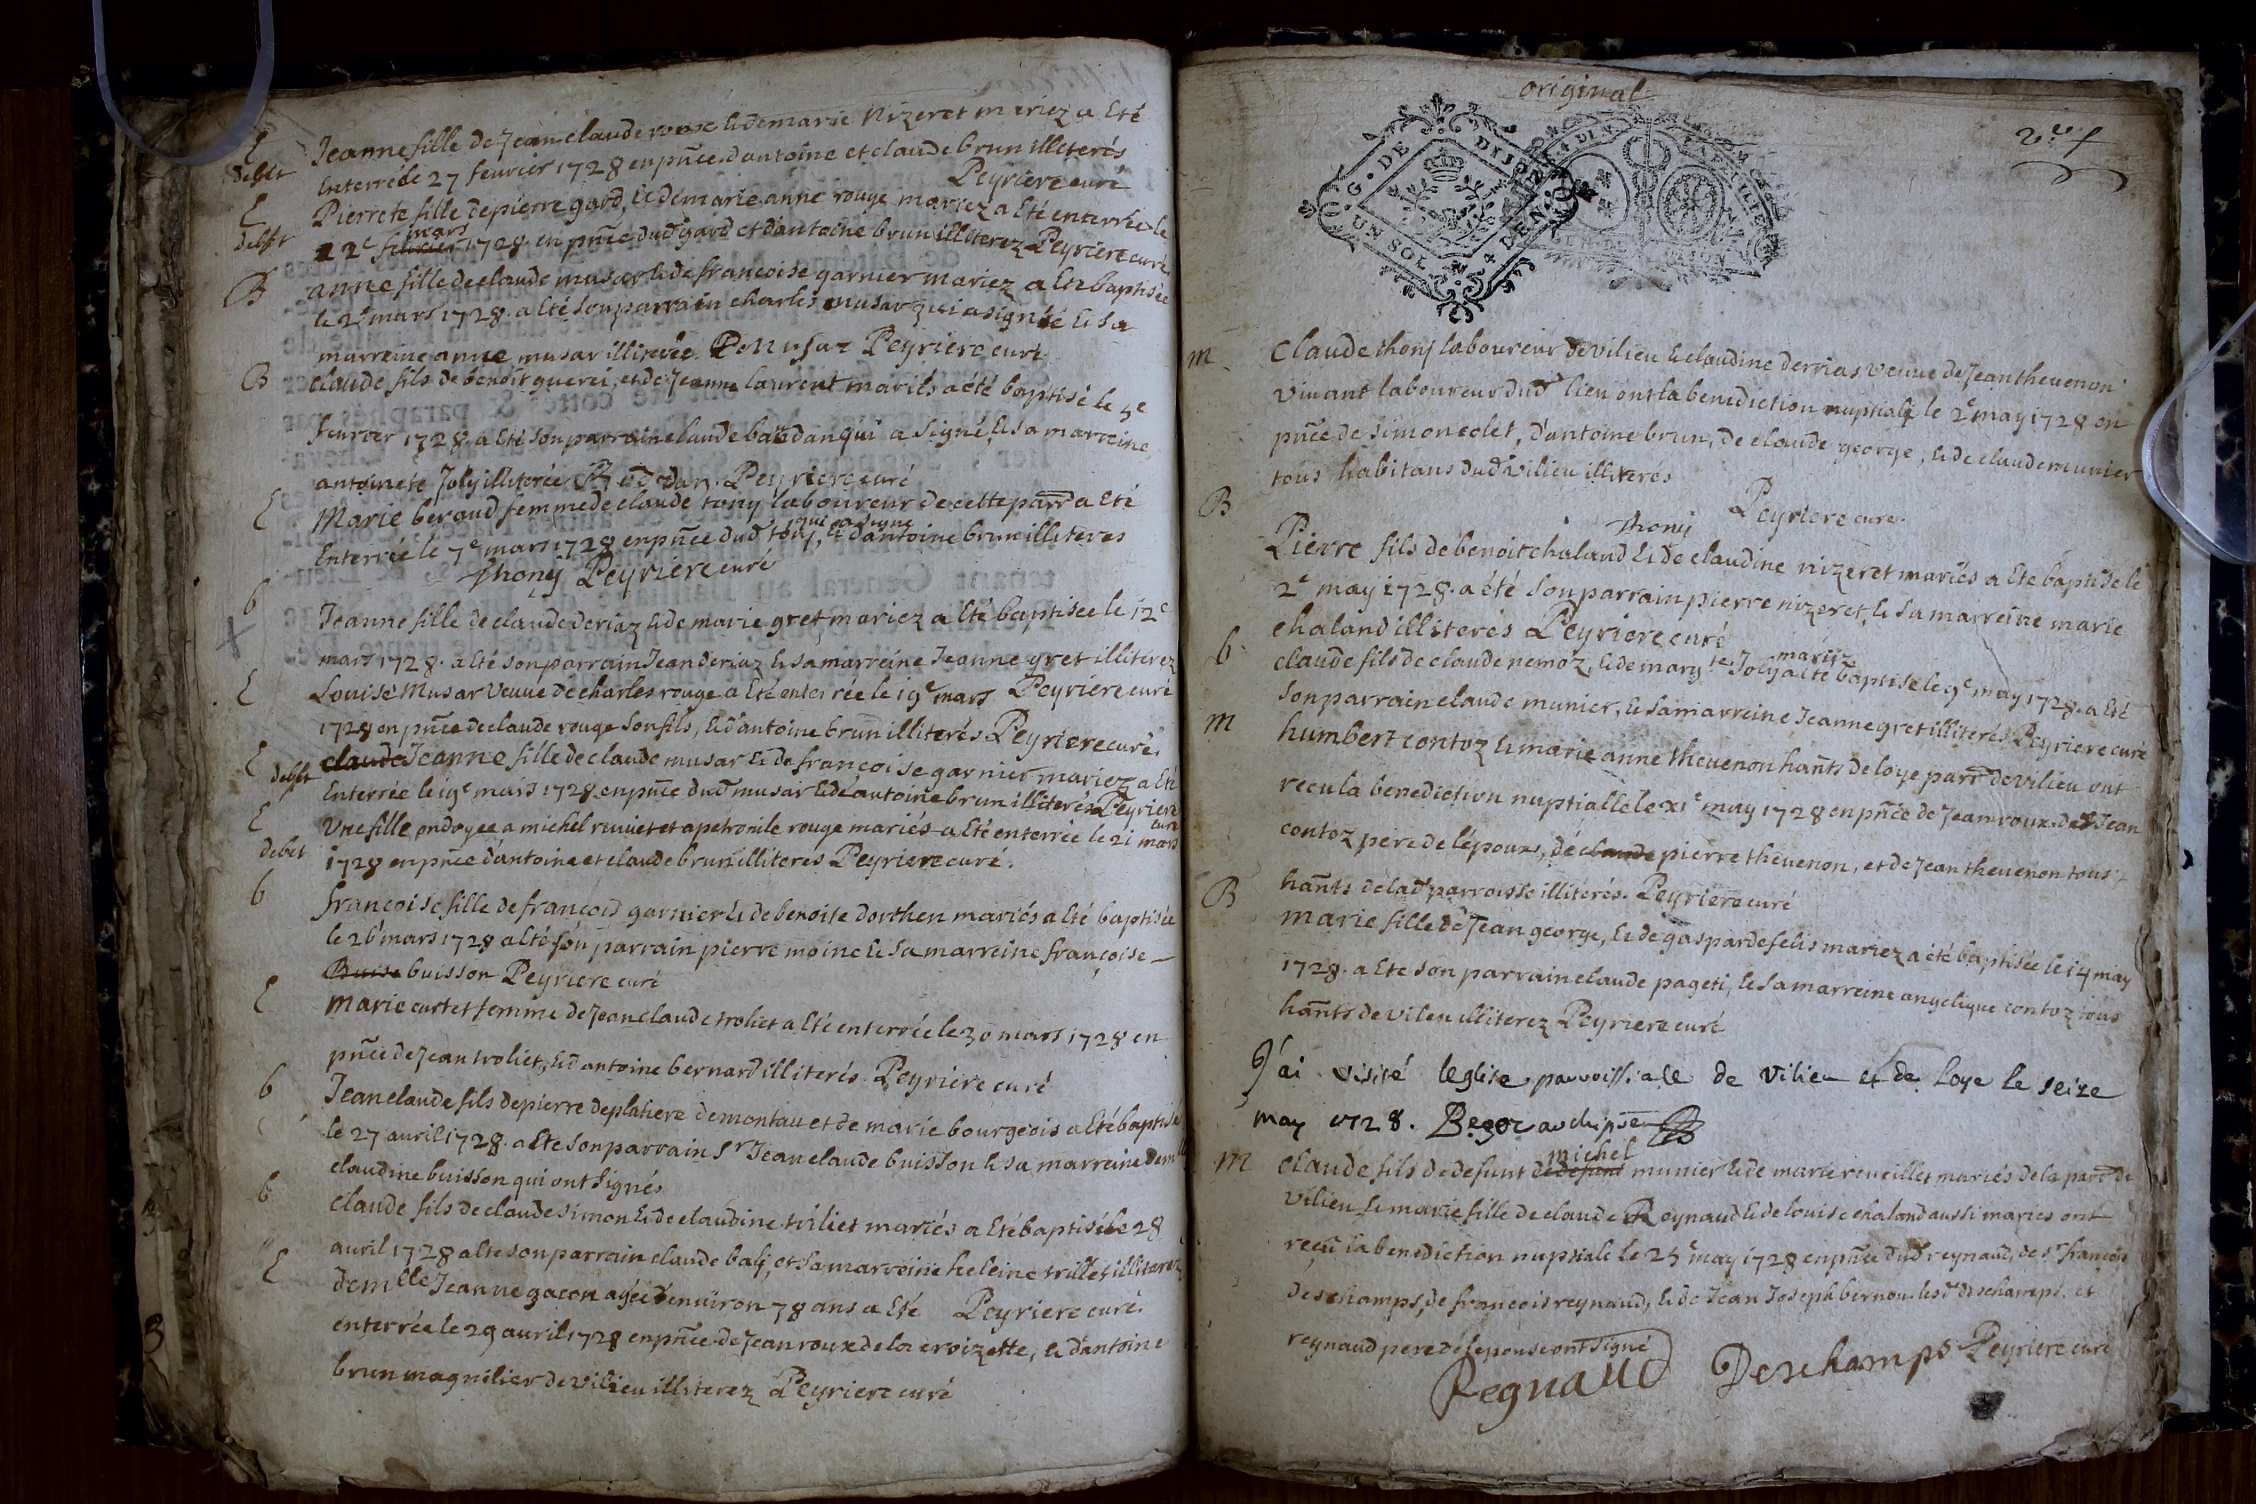 E Jeanne fille de Jean claude roux & de marie Nizeret mariez a Eté
debet Enterrée le 27 fevrier 1728 en pñce d'antoine et claude brun illiterés
Peyriere curé
E Pierrete fille de pierre gard, & de marie anne rouge mariez a Eté enterrée le
mars
debet 22e fevrier 1728 en pñce dud gard et d'antoine brun illiterez Peyriere curé
B anne fille de claude musar & de francoise garnier mariez a Eté baptisée
le 2e mars 1728. a Eté son parrain charles musar qui a signé & sa
marreine anne musar illiterée. C musar Peyriere curé
B claude fils de benoit guerci, et de Jeanne laurent mariés a été baptisé le 5e
fevrier 1728. a Eté son parrain claude baudan qui a signé, & sa marreine
antoinete Joly illiterée Boddan. Peyriere curé
E Marie beraud femme de claude tony laboureur de cette parr a Eté
qui a signe
Enterrée le 7e mars 1728 en pñce dud tony, & d'antoine brun illiteres
Thony Peyriere curé
b Jeanne fille de claude deriaz & de marie gret mariez a Eté baptisée le 12e
X
mars 1728. a Eté son parrain Jean deriaz & sa marreine Jeanne gret illiterez
Peyriere curé
E Louise Musar veuve de charles rouge a Eté enterrée le 19e mars
1728 en pñce de claude rouge son fils, & d'antoine brun illiterés Peyriere curé
E claude Jeanne fille de claude musar & de francoise garnier mariez a Eté
debet Enterrée le 19e mars 1728. en pñce dud musar & de antoine brun illiterés Peyriere
curé
E Une fille ondoyee a michel et a petronile rouge mariés a Eté enterrée le 21 mars
debet 1728 en pñce d'antoine et claude brun illiteres Peyriere curé.
b francoise fille de francois garnier & de benoite dorthen mariés a Eté baptisée
le 26 mars 1728 a Eté son parrain pierre moine & sa marreine françoise
Buiso buisson Peyriere curé
E Marie curtet femme de Jean claude troliet a Eté enterrée le 30 mars 1728 en
pñce de Jean troliet, & d'antoine bernard illiterés. Peyriere curé
b Jean claude fils de pierre deplatiere demontau et de marie bourgeois a Eté baptisé
le 27 avril 1728. a Ete son parrain Sr Jean claude buisson & sa marreine demlle
claudine buisson qui ont signés
b claude fils de claude simon & de claudine triliet mariés a Eté baptisé le 28
avril 1728 a Ete son parrain claude baly, et sa marreine heleine trillet illiterez
Peyriere curé.
E demlle Jeanne gacon agée d'environ 78 ans a Eté
enterrée le 29 avril 1728 en pñce de Jean roux de la croizette, & d'antoine
brun magnilier de vilieu illiterez Peyriere curé
original
G. DE DIJON
UN SOL 4 DEN.
m Claude thony laboureur de vilieu & claudine derias veuve de Jean thevenon
vivant laboureur dud lieu ont la benediction nuptiale le 2e may 1728 en
pñce de simon colet, d'antoine brun, de claude george, & de claude munier
tous habitans dud vilieu illiterés
Thony Peyriere curé.
B Pierre fils de benoit chaland & de claudine nizeret mariés a Eté baptisé le
2e may 1728. a été son parrain pierre nizeret, & sa marreine marie
chaland illiterés Peyriere curé
mariez
b claude fils de claude nemoz, & de margte Joly a Eté baptisé le 9e may 1728. a Eté
son parrain claude munier, & sa marreine Jeanne gret illiterés Peyriere curé
m humbert contoz & marie anne thevenon hants de loye parr de vilieu ont
recu la benediction nuptialle le xie may 1728 en pñce de Jean roux, de Jean
contoz pere de l'époux, de claude pierre thevenon, et de Jean thevenon tous
hants de lad parroisse illiterés. Peyriere curé
B marie fille de Jean george, & de gasparde felis mariez a été baptisée le 14 may
1728. a Ete son parrain claude pageti, & sa marreine angelique contoz tous
hants de vileu illiterez Peyriere curé
J'ai visité leglise parroissialle de Vilieu et de Loye le seize
may 1728. Begoz archiptre
michel
M claude fils de defunt de defunt munier & de marie recueillet mariés de la parr de
vilieu & marie fille de claude Reynaud & de louise chaland aussi mariés ont
reçu la benediction nuptiale le 25e may 1728 en pñce dud reynaud, de sr francois
deschamps, de francois reynaud, & de Jean Joseph bernou lesd deschamps et
reynaud pere de l'epouse ont signé
Regnaud Deschamps Peyriere curé